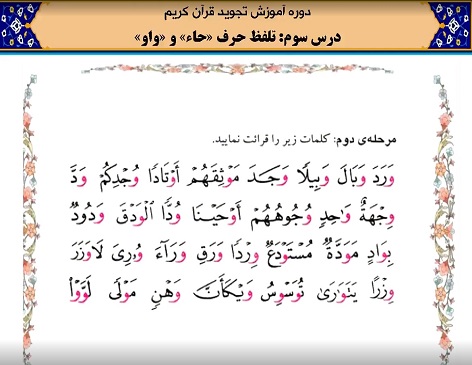 دوره آموزش تجوید قرآن کریم
درس سوم: تلفظ حرف «حاء» و «واو»
مرحله‌ی دوم: کلمات زیر را قرائت نمایید.
وَرَدَ وَبَالَ وَبِيلًا وَجَدَ مَوْثِقَهُمْ أَوْتَادًا وُجْدِكُمْ وَدَّ
وِجْهَةٌ وَاحِدٍ وُجُوهُهُمْ أَوْحَيْنَا وُدًّا الْوَدْقَ وَدُودٌ
بِوَادٍ مَوَدَّةً مُسْتَوْدَعٌ وِرْدًا وَرَقِ وَرَآءَ وُۥرِىَ لَاوَزَرَ
وِزْرًا يَتَوَارَىٰ تُوَسْوِسُ وَيْكَأَنَّ وَهْنٍ مَوْلًى لَوَّوْا